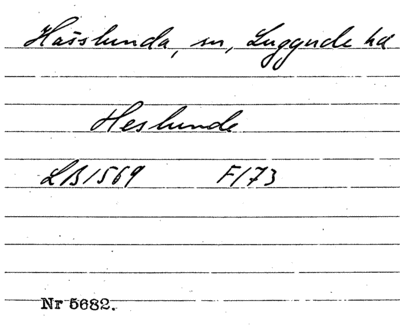 Hässlunda, sn, Luggude hd
Heslunde
LB 1569 F173
Nr 5682.